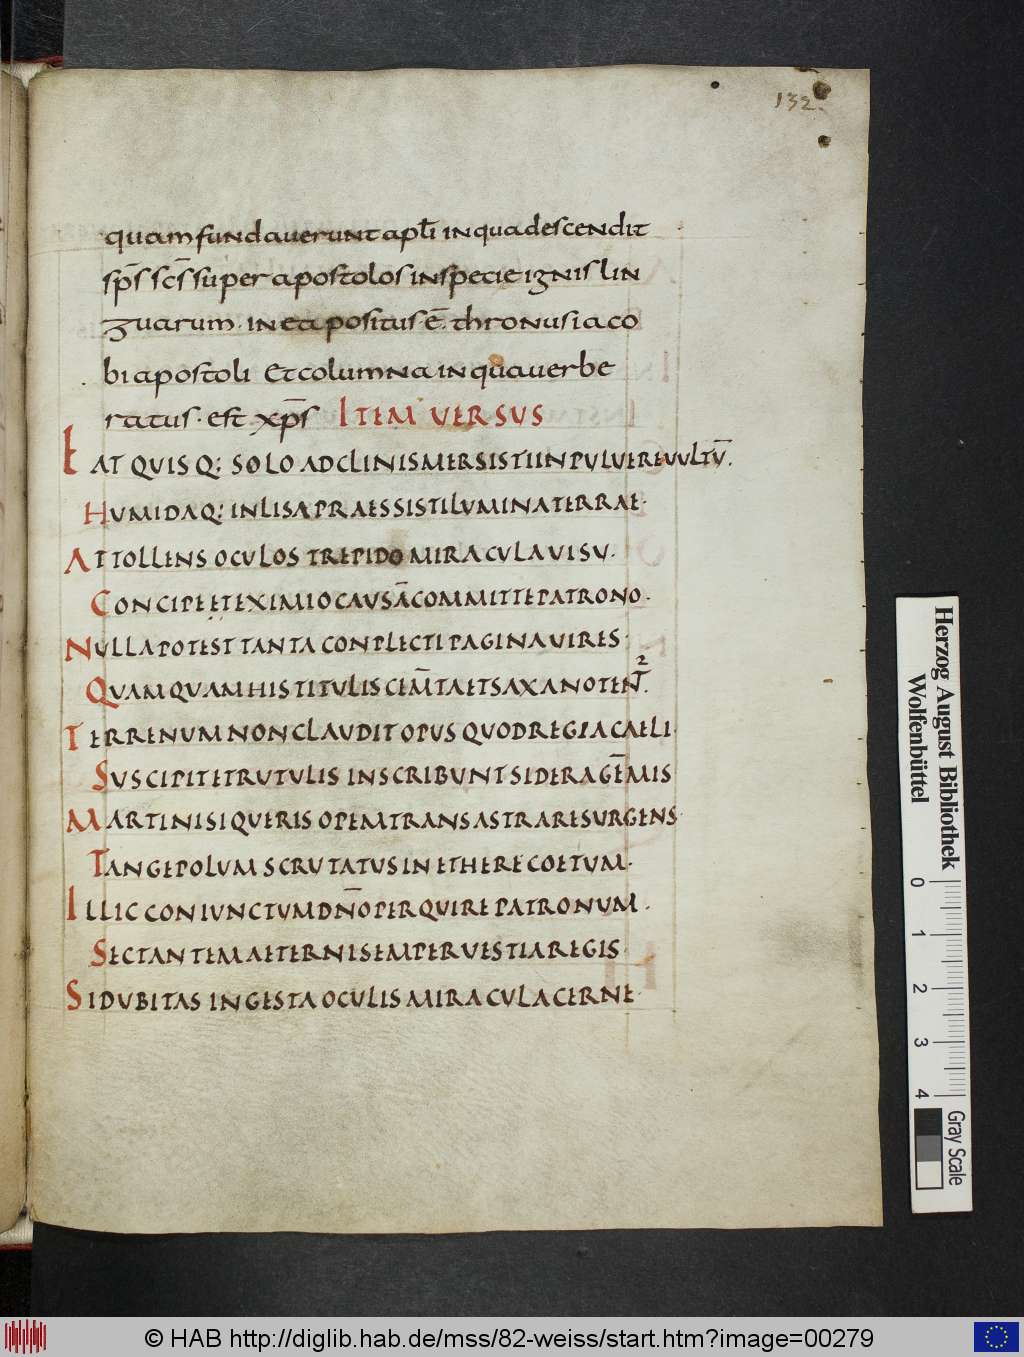 132.
quam fundauerunt apl̄i in qua descendit
sp̄s sc̄s super apostolos in specie ignis lin
guarum. in ea positus ē. thronus iaco
bi apostoli Et columna in qua uerbe
ratus. est xp̄s ITEM UERSUS
EAT QUISQ; SOLO ADCLINIS MERSISTI IN PULUERE UULTŪ.
HUMIDAQ; INLISA PRAESSISTI LUMINA TERRAE.
ATTOLLENS OCULOS TREPIDO MIRACULA UISU.
CONCIPE ET EXIMIO CAUSĀ COMMITTE PATRONO.
NULLA POTEST TANTA CONPLECTI PAGINA UIRES.
QUAMQUAM HIS TITULIS CEM̄TA ET SAXA NOTENT̄.
TERRENUM NON CLAUDIT OPUS QUOD REGIA CAELI.
SUSCIPIT ET RUTULIS INSCRIBUNT SIDERA GEM̄IS
MARTINI SI QUERIS OPEM TRANS ASTRA RESURGENS.
TANGE POLUM SCRUTATUS IN ETHERE COETUM.
ILLIC CONIUNCTUM DN̄O PERQUIRE PATRONUM.
SECTANTEM AETERNI SEMPER UESTIA REGIS.
SI DUBITAS INGESTA OCULIS MIRACULA CERNE.
Herzog August Bibliothek
Wolfenbüttel
0 1 2 3 4
Gray Scale
© HAB http://diglib.hab.de/mss/82-weiss/start.htm?image=00279